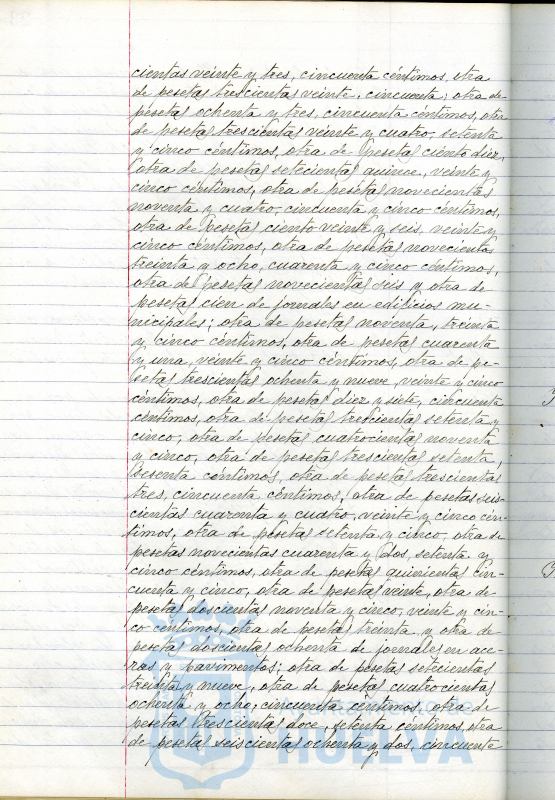 cientas veinte y tres, cincuenta céntimos, otra
de pesetas trescientas veinte, cincuenta; otra de
pesetas ochenta y tres, cincuenta céntimos, otra
de pesetas trescientas veinte y cuatro, setenta
y cinco céntimos, otra de pesetas ciento diez,
otra de pesetas setecientas quince, veinte y
cinco céntimos, otra de pesetas novecientas
noventa y cuatro, cincuenta y cinco céntimos,
otra de pesetas ciento veinte y seis, veinte y
cinco céntimos, otra de pesetas novecientas
treinta y ocho, cuarenta y cinco céntimos,
otra de pesetas novecientas seis y otra de
pesetas cien de jornales en edificios mu-
nicipales; otra de pesetas noventa, treinta
y cinco céntimos, otra de pesetas cuarenta
y una, veinte y cinco céntimos, otra de pe-
setas trescientas ochenta y nueve, veinte y cinco
céntimos, otra de pesetas diez y siete, cincuenta
céntimos, otra de pesetas trescientas setenta y
cinco, otra de pesetas cuatrocientas noventa
y cinco, otra de pesetas trescientas setenta,
sesenta céntimos, otra de pesetas trescientas
tres, cincuenta céntimos, otra de pesetas seis-
cientas cuarenta y cuatro, veinte y cinco cén-
timos, otra de pesetas setenta y cinco, otra de
pesetas novecientas cuarenta y dos, setenta y
cinco céntimos, otra de pesetas quinientas cin-
cuenta y cinco, otra de pesetas veinte, otra de
pesetas doscientas noventa y cinco, veinte y cin-
co céntimos, otra de pesetas treinta y otra de
pesetas doscientas ochenta de jornales en ace-
ras y pavimentos; otra de pesetas setecientas
treinta y nueve, otra de pesetas cuatrocientas
ochenta y ocho, cincuenta céntimos, otra de
pesetas trescientas doce, setenta céntimos, otra
de pesetas seiscientas ochenta y dos, cincuenta
HUELVA